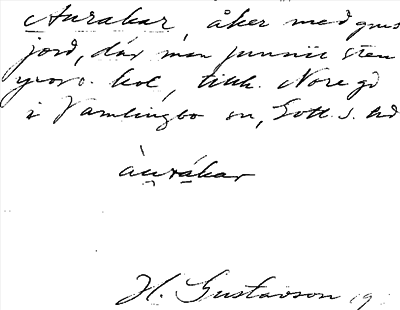 Aurakar, åker med grus
jord, där man funnit sten
yxor. kol, tillh. Nore gd
i Vamlingbo sn, Gotl. S. hd
àurákar
H. Gustavson 19